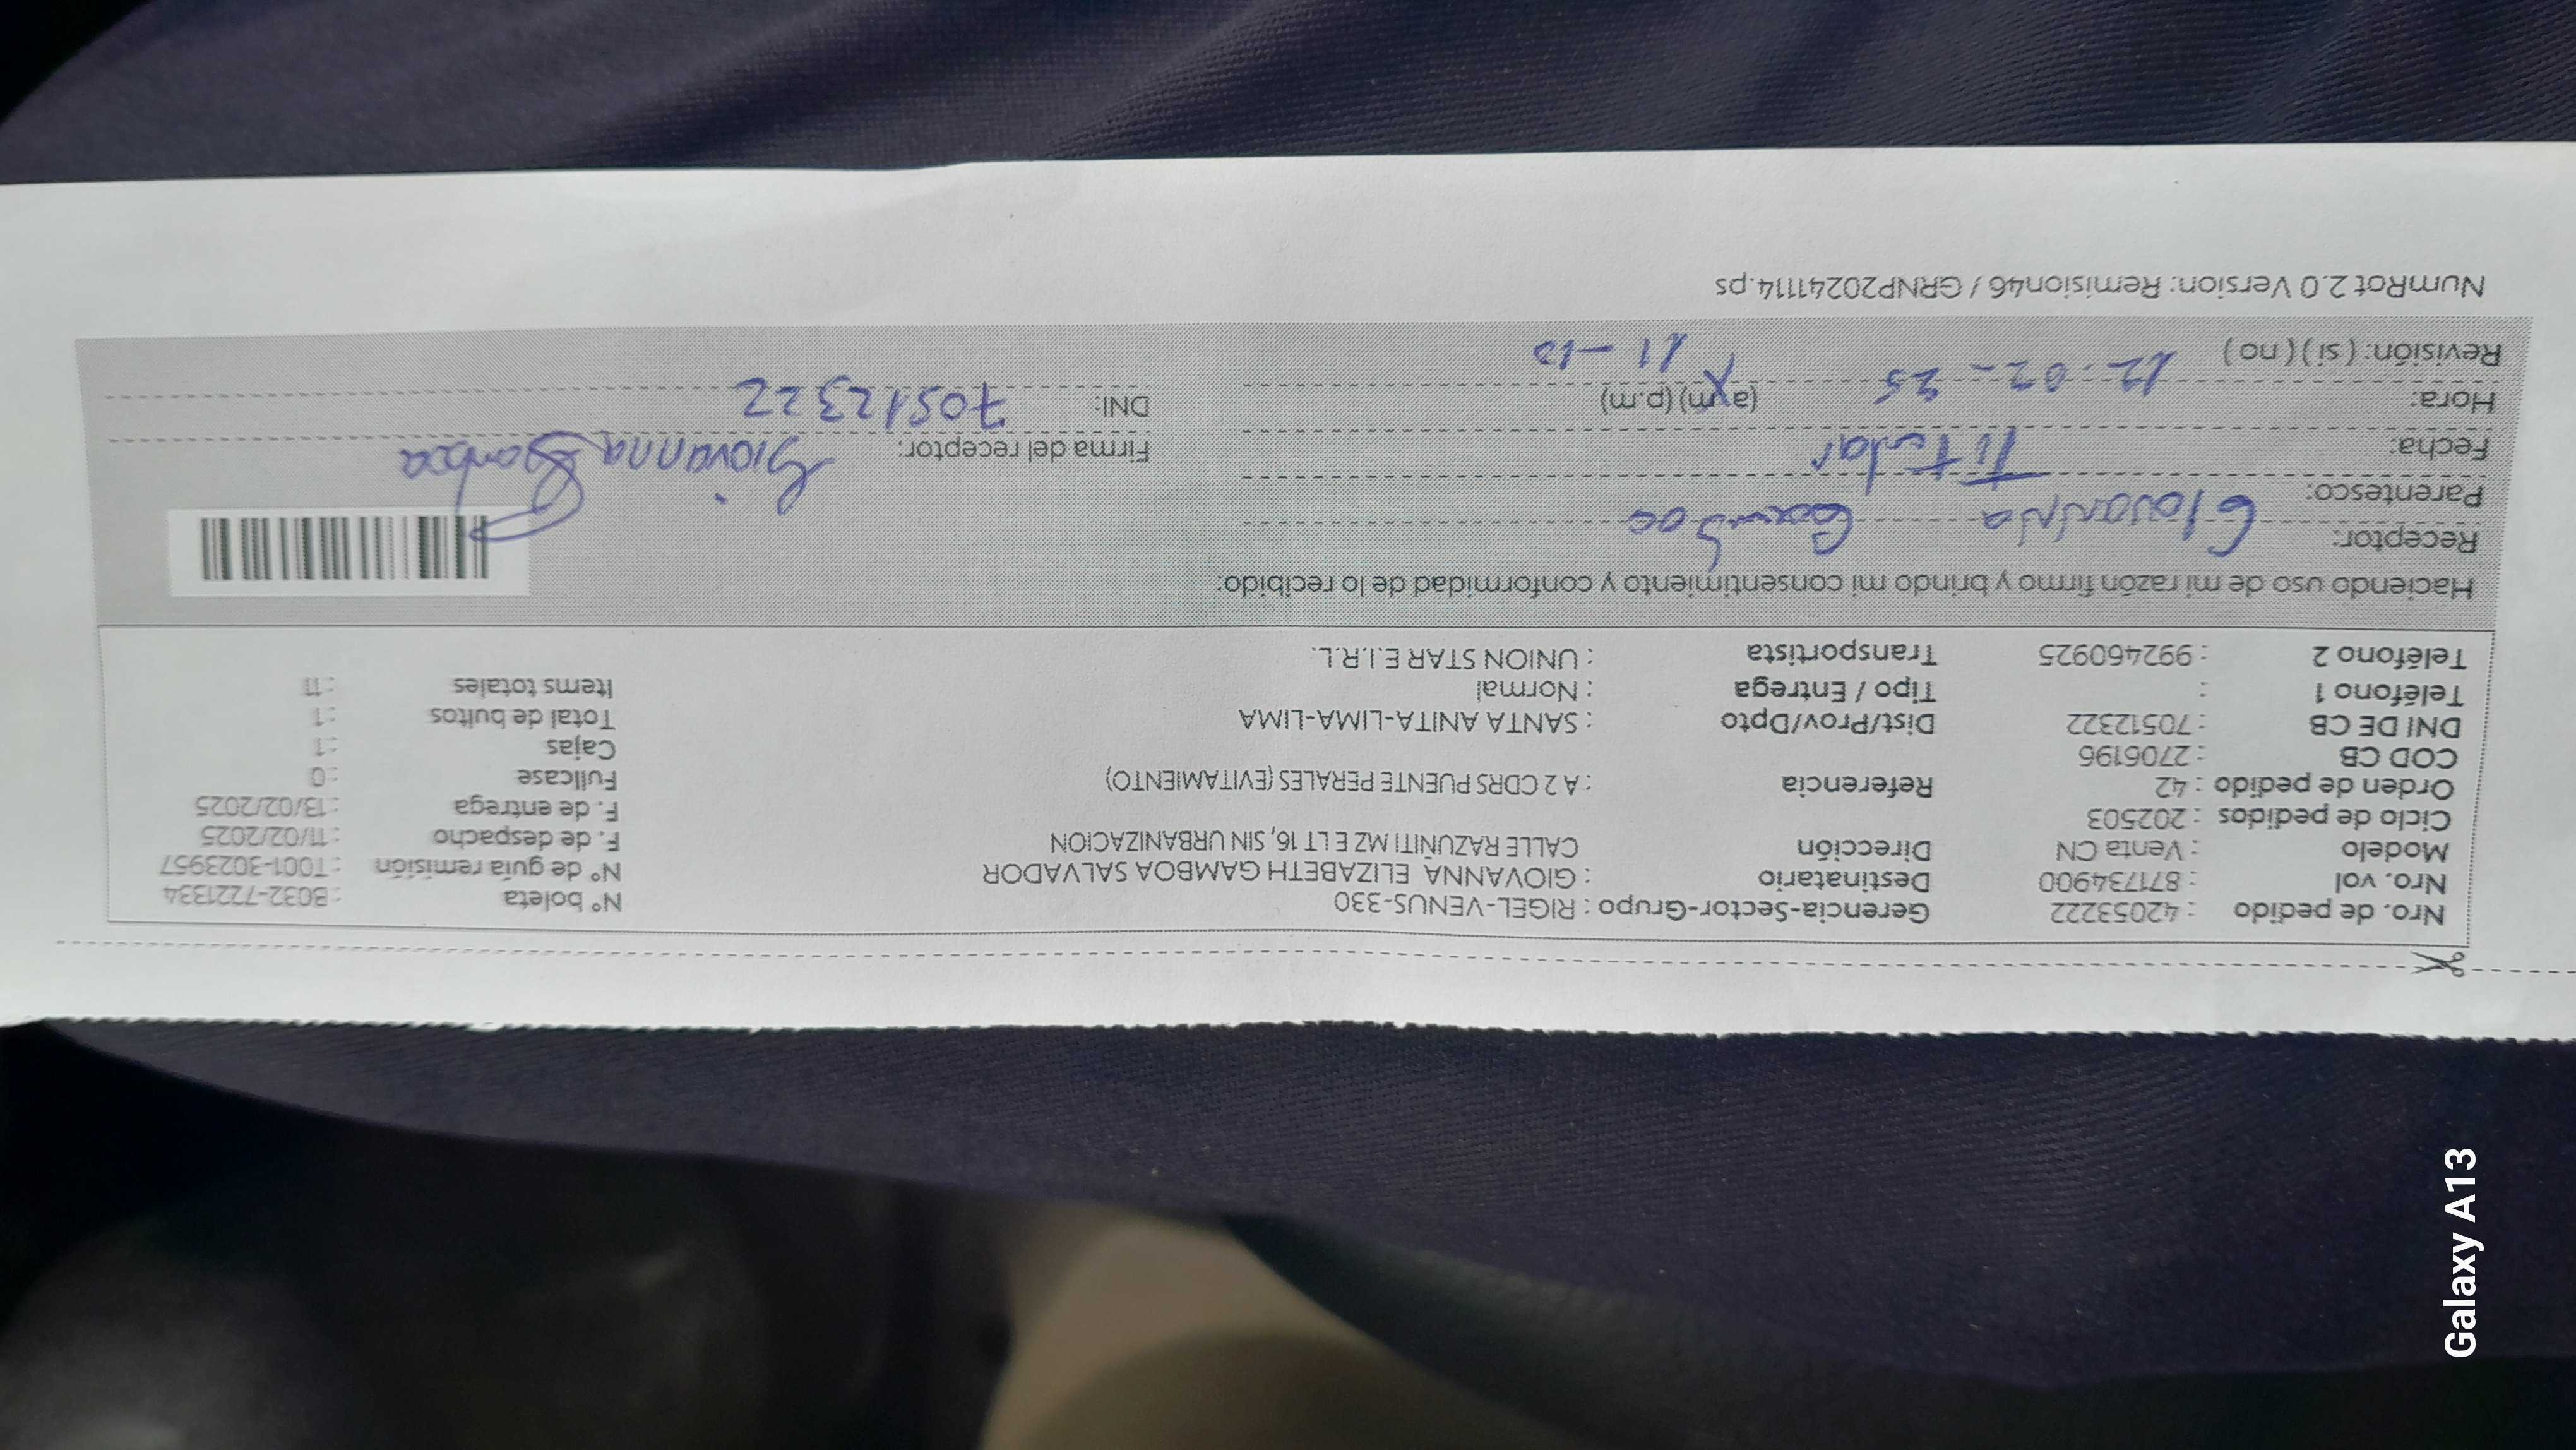 Nro. de pedido : 42053222 Gerencia-Sector-Grupo : RIGEL-VENUS-330 N° boleta : B032-7221334
Nro. vol : 871734900 Destinatario : GIOVANNA ELIZABETH GAMBOA SALVADOR N° de guía remisión : T001-3023957
Modelo : Venta CN Dirección CALLE RAZUÑITI MZ E LT 16, SIN URBANIZACION F. de despacho : 11/02/2025
Ciclo de pedidos : 202503 F. de entrega : 13/02/2025
Orden de pedido : 42 Referencia : A 2 CDRS PUENTE PERALES (EVITAMIENTO) Fullcase : 0
COD CB : 2706196 Cajas : 1
DNI DE CB : 70512322 Dist/Prov/Dpto : SANTA ANITA-LIMA-LIMA Total de bultos : 1
Teléfono 1 : Tipo / Entrega : Normal Items totales : 11
Teléfono 2 : 992460925 Transportista : UNION STAR E.I.R.L.
Haciendo uso de mi razón firmo y brindo mi consentimiento y conformidad de lo recibido:
Receptor: Giovanna
Parentesco: Titular Firma del receptor: Giovanna Gamboa
Fecha:
Hora: 12-02-25 (a.m) (p.m) DNI: 70512322
Revisión: ( si ) ( no ) 11-10
NumRot 2.0 Version: Remision46 / GRNP20241114.ps
Galaxy A13